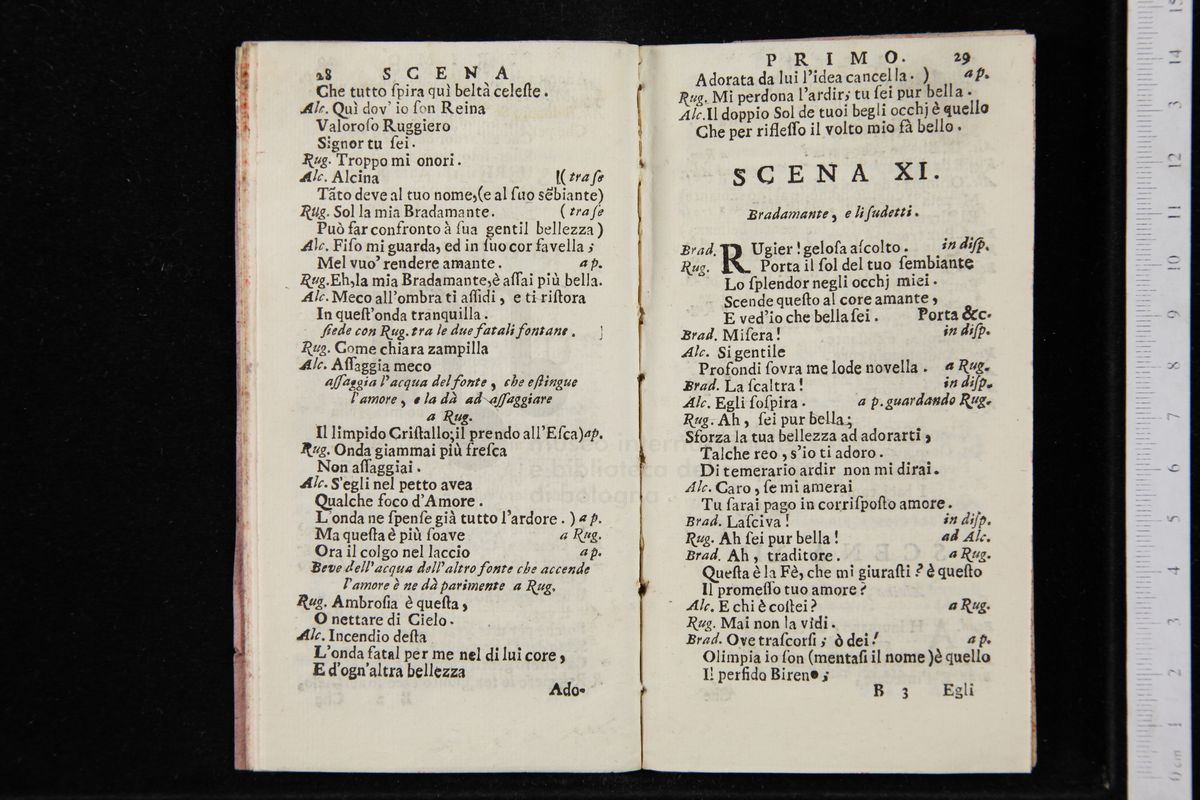 28 SCENA
Che tutto ſpira quì beltà celeſte.
Alc. Quì dov' io ſon Reina
Valoroſo Ruggiero
Signor tu ſei.
Rug. Troppo mi onori.
Alc. Alcina !( tra ſe
Tãto deve al tuo nome,(e al ſuo sẽbiante)
Rug. Sol la mia Bradamante. ( tra ſe
Può far confronto à ſua gentil bellezza )
Alc. Fiſo mi guarda, ed in ſuo cor favella ;
Mel vuo' rendere amante. a p.
Rug. Eh,la mia Bradamante,è aſſai più bella.
Alc. Meco all'ombra tì aſſidi , e ti riſtora
In queſt'onda tranquilla.
ſiede con Rug. tra le due fatali fontane. ]
Rug. Come chiara zampilla
Alc. Aſſaggia meco
aſſaggia l'acqua del fonte , che eſtingue
l'amore , e la dà ad aſſaggiare
a Rug.
Il limpido Criſtallo;il prendo all'Eſca)ap.
Rug. Onda giammai più freſca
Non aſſaggiai.
Alc. S'egli nel petto avea
Qualche foco d'Amore.
L'onda ne ſpenſe già tutto l'ardore. ) a p.
Ma queſta è più ſoave a Rug.
Ora il colgo nel laccio ap.
Beve dell'acqua dell'altro fonte che accende
l'amore è ne dà parimente a Rug.
Rug. Ambroſia è queſta,
O nettare di Cielo.
Alc. Incendio deſta
L'onda fatal per me nel di lui core,
E d'ogn'altra bellezza
Ado-
PRIMO. 29
Adorata da lui l'idea cancella. ) ap.
Rug. Mi perdona l'ardir; tu ſei pur bella.
Alc. Il doppio Sol de tuoi begli occhj è quello
Che per rifleſſo il volto mio fà bello.
SCENA XI.
Bradamante, e li ſudetti.
Brad. RUgier ! geloſa aſcolto. in diſp.
Rug. Porta il ſol del tuo ſembiante
Lo ſplendor negli occhj miei.
Scende queſto al core amante,
E ved'io che bella ſei. Porta &c.
Brad. Miſera! in diſp.
Alc. Si gentile
Profondi ſovra me lode novella. a Rug.
Brad. La ſcaltra! in diſp.
Alc. Egli ſoſpira. a p. guardando Rug.
Rug. Ah, ſei pur bella;
Sforza la tua bellezza ad adorarti,
Talche reo, s'io ti adoro.
Di temerario ardir non mi dirai.
Alc. Caro, ſe mi amerai
Tu ſarai pago in corriſpoſto amore.
Brad. Laſciva! in diſp.
Rug. Ah ſei pur bella! ad Alc.
Brad. Ah, traditore. a Rug.
Queſta è la Fè, che mi giuraſti ? è queſto
Il promeſſo tuo amore?
Alc. E chi è coſtei? a Rug.
Rug. Mai non la vidi.
Brad. Ove traſcorſi ; ò dei! ap.
Olimpia io ſon (mentaſi il nome )è quello
Il perfido Bireno;
B 3 Egli